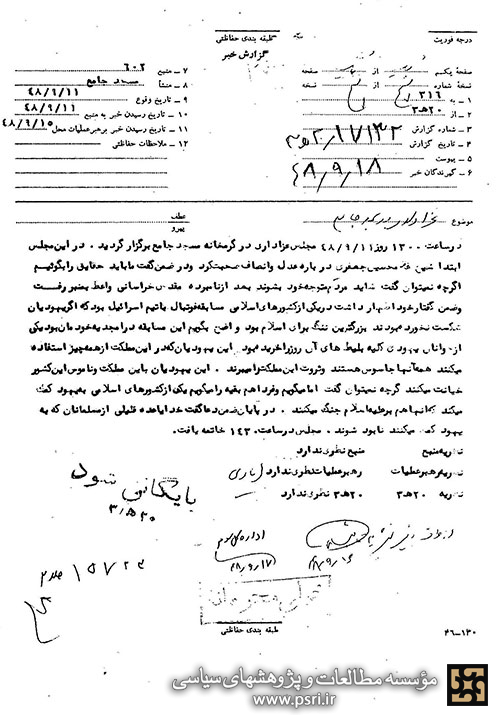 درجه فوریت
طبقه بندی حفاظتی
گزارش خبر
صفحه یکم از صفحه
نسخه شماره از نسخه
۱ - به ۳۱۶
۲ - از ۲۰ هـ ۳
۳ - شماره گزارش ۱۷۱۳۲ / ۲۰ هـ ۳
۴ - تاریخ گزارش ۴۸/۹/۱۸
۵ - پیوست
۶ - گیرندگان خبر
۷ - منبع ۶۰۲
۸ - منشأ مسجد جامع
۹ - تاریخ وقوع ۴۸/۹/۱۱
۱۰ - تاریخ رسیدن خبر به منبع ۴۸/۹/۱۱
۱۱ - تاریخ رسیدن خبر برهبر عملیات محل ۴۸/۹/۱۵
۱۲ - ملاحظات حفاظتی
موضوع
عطف
پیرو
در ساعت ۱۳۰۰ روز ۴۸/۹/۱۱ مجلس عزاداری در گرمخانه مسجد جامع برگزار گردید . در این مجلس
ابتدا شیخ جعفری در باره عدل و انصاف صحبت کرد و در ضمن گفت ما باید حقایق را بگوئیم
اگرچه نمیتوان گفت شاید مردم متوجه خود بشوند بعد از نامبرده مقدس خراسانی واعظ بمنبر رفت
و ضمن گفتار خود اظهار داشت در یکی از کشورهای اسلامی مسابقه فوتبال باتیم اسرائیل بود که اگر یهودیان
شکست نخورده بودند بزرگترین ننگ برای اسلام بود و واضح بگویم این مسابقه در امجدیه خودمان بود یکی
از یهودی کلیه بلیط های آن روز را خرید بود . این یهودیان که در این مملکت از همه چیز استفاده
میکنند همه آنها جاسوس هستند و ثروت این مملکت را میبرند . این یهودیان باین مملکت و ناموس این کشور
خیانت میکنند گرچه نمیتوان گفت اما میگویم و فردا هم بقیه را میگویم یکی از کشورهای اسلامی به یهود کمک
میکند که آنها هم بر علیه اسلام جنگ میکنند . در پایان ضمن دعا گفت خدایا عده قلیلی از مسلمانان که به
یهود کمک میکنند نابود شوند . مجلس در ساعت ۱۴۳۰ خاتمه یافت .
نظریه منبع منبع نظری ندارد
نظریه رهبر عملیات رهبر عملیات نظری ندارد
نظریه ۲۰ هـ ۳ ۲۰ هـ ۳ نظری ندارد
بایگانی شود
۲۰ هـ ۳
اداره کل سوم
۴۸/۹/۱۷
۱۵۷۲۳
خیلی محرمانه
طبقه بندی حفاظتی
۴۶-۱۳۰
مؤسسه مطالعات و پژوهشهای سیاسی
www.psri.ir